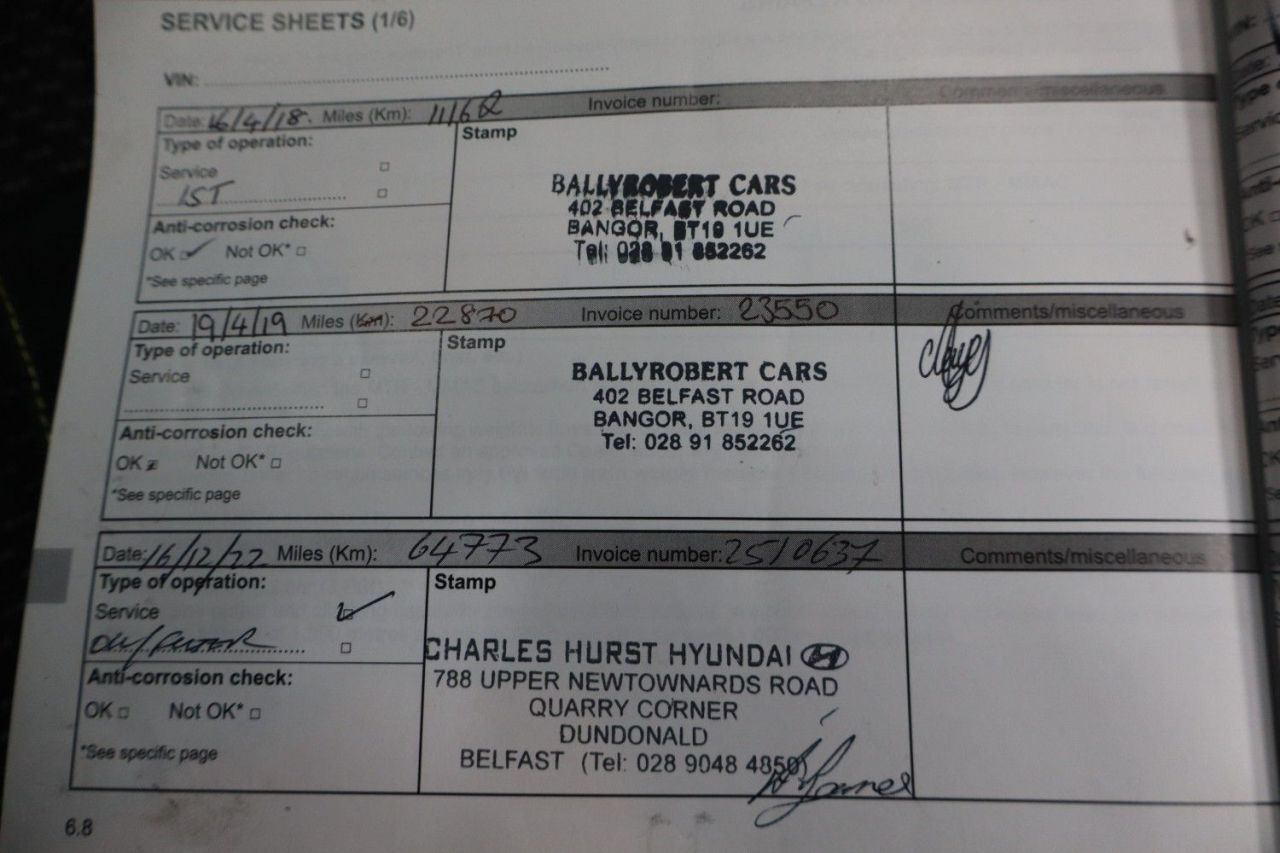 SERVICE SHEETS (1/6)
VIN:
Date: 16/4/18. Miles (Km): 11162 Invoice number: Comments/miscellaneous
Type of operation:
Stamp
Service
1ST
Anti-corrosion check:
OK Not OK*
*See specific page
BALLYROBERT CARS
402 BELFAST ROAD
BANGOR, BT19 1UE
Tel: 028 91 852262
Date: 19/4/19 Miles (Km): 22870 Invoice number: 23550 Comments/miscellaneous
Type of operation:
Stamp
Service
Anti-corrosion check:
OK Not OK*
*See specific page
BALLYROBERT CARS
402 BELFAST ROAD
BANGOR, BT19 1UE
Tel: 028 91 852262
Date: 16/12/22 Miles (Km): 64773 Invoice number: 2510637 Comments/miscellaneous
Type of operation:
Stamp
Service
Anti-corrosion check:
OK Not OK*
*See specific page
CHARLES HURST HYUNDAI
788 UPPER NEWTOWNARDS ROAD
QUARRY CORNER
DUNDONALD
BELFAST (Tel: 028 9048 4850)
6.8